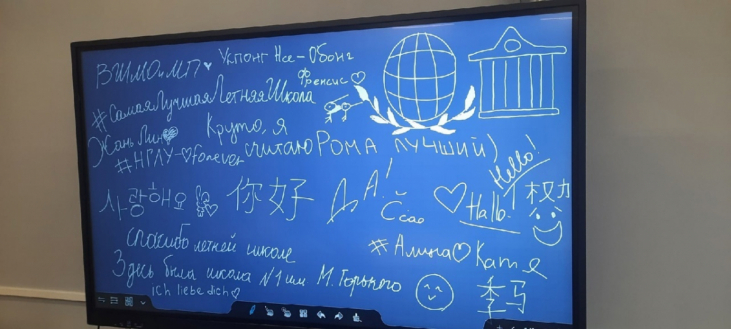 ВШМОиМП♥
Уктонг Нсе-Обонг
Френсис♡
#СамаяЛучшаяЛетняяШкола
Жань Лин♥
Круто, я
считаю Рома лучший)
#НГЛУ-♡forever
Hello!
사랑해요
你好
ДА!
Čiao
♡Hallo!
权力
спасибо летней школе
#Алина♡Катя
Здесь была школа №1 им М. Горького
李马
ich liebe dich♡